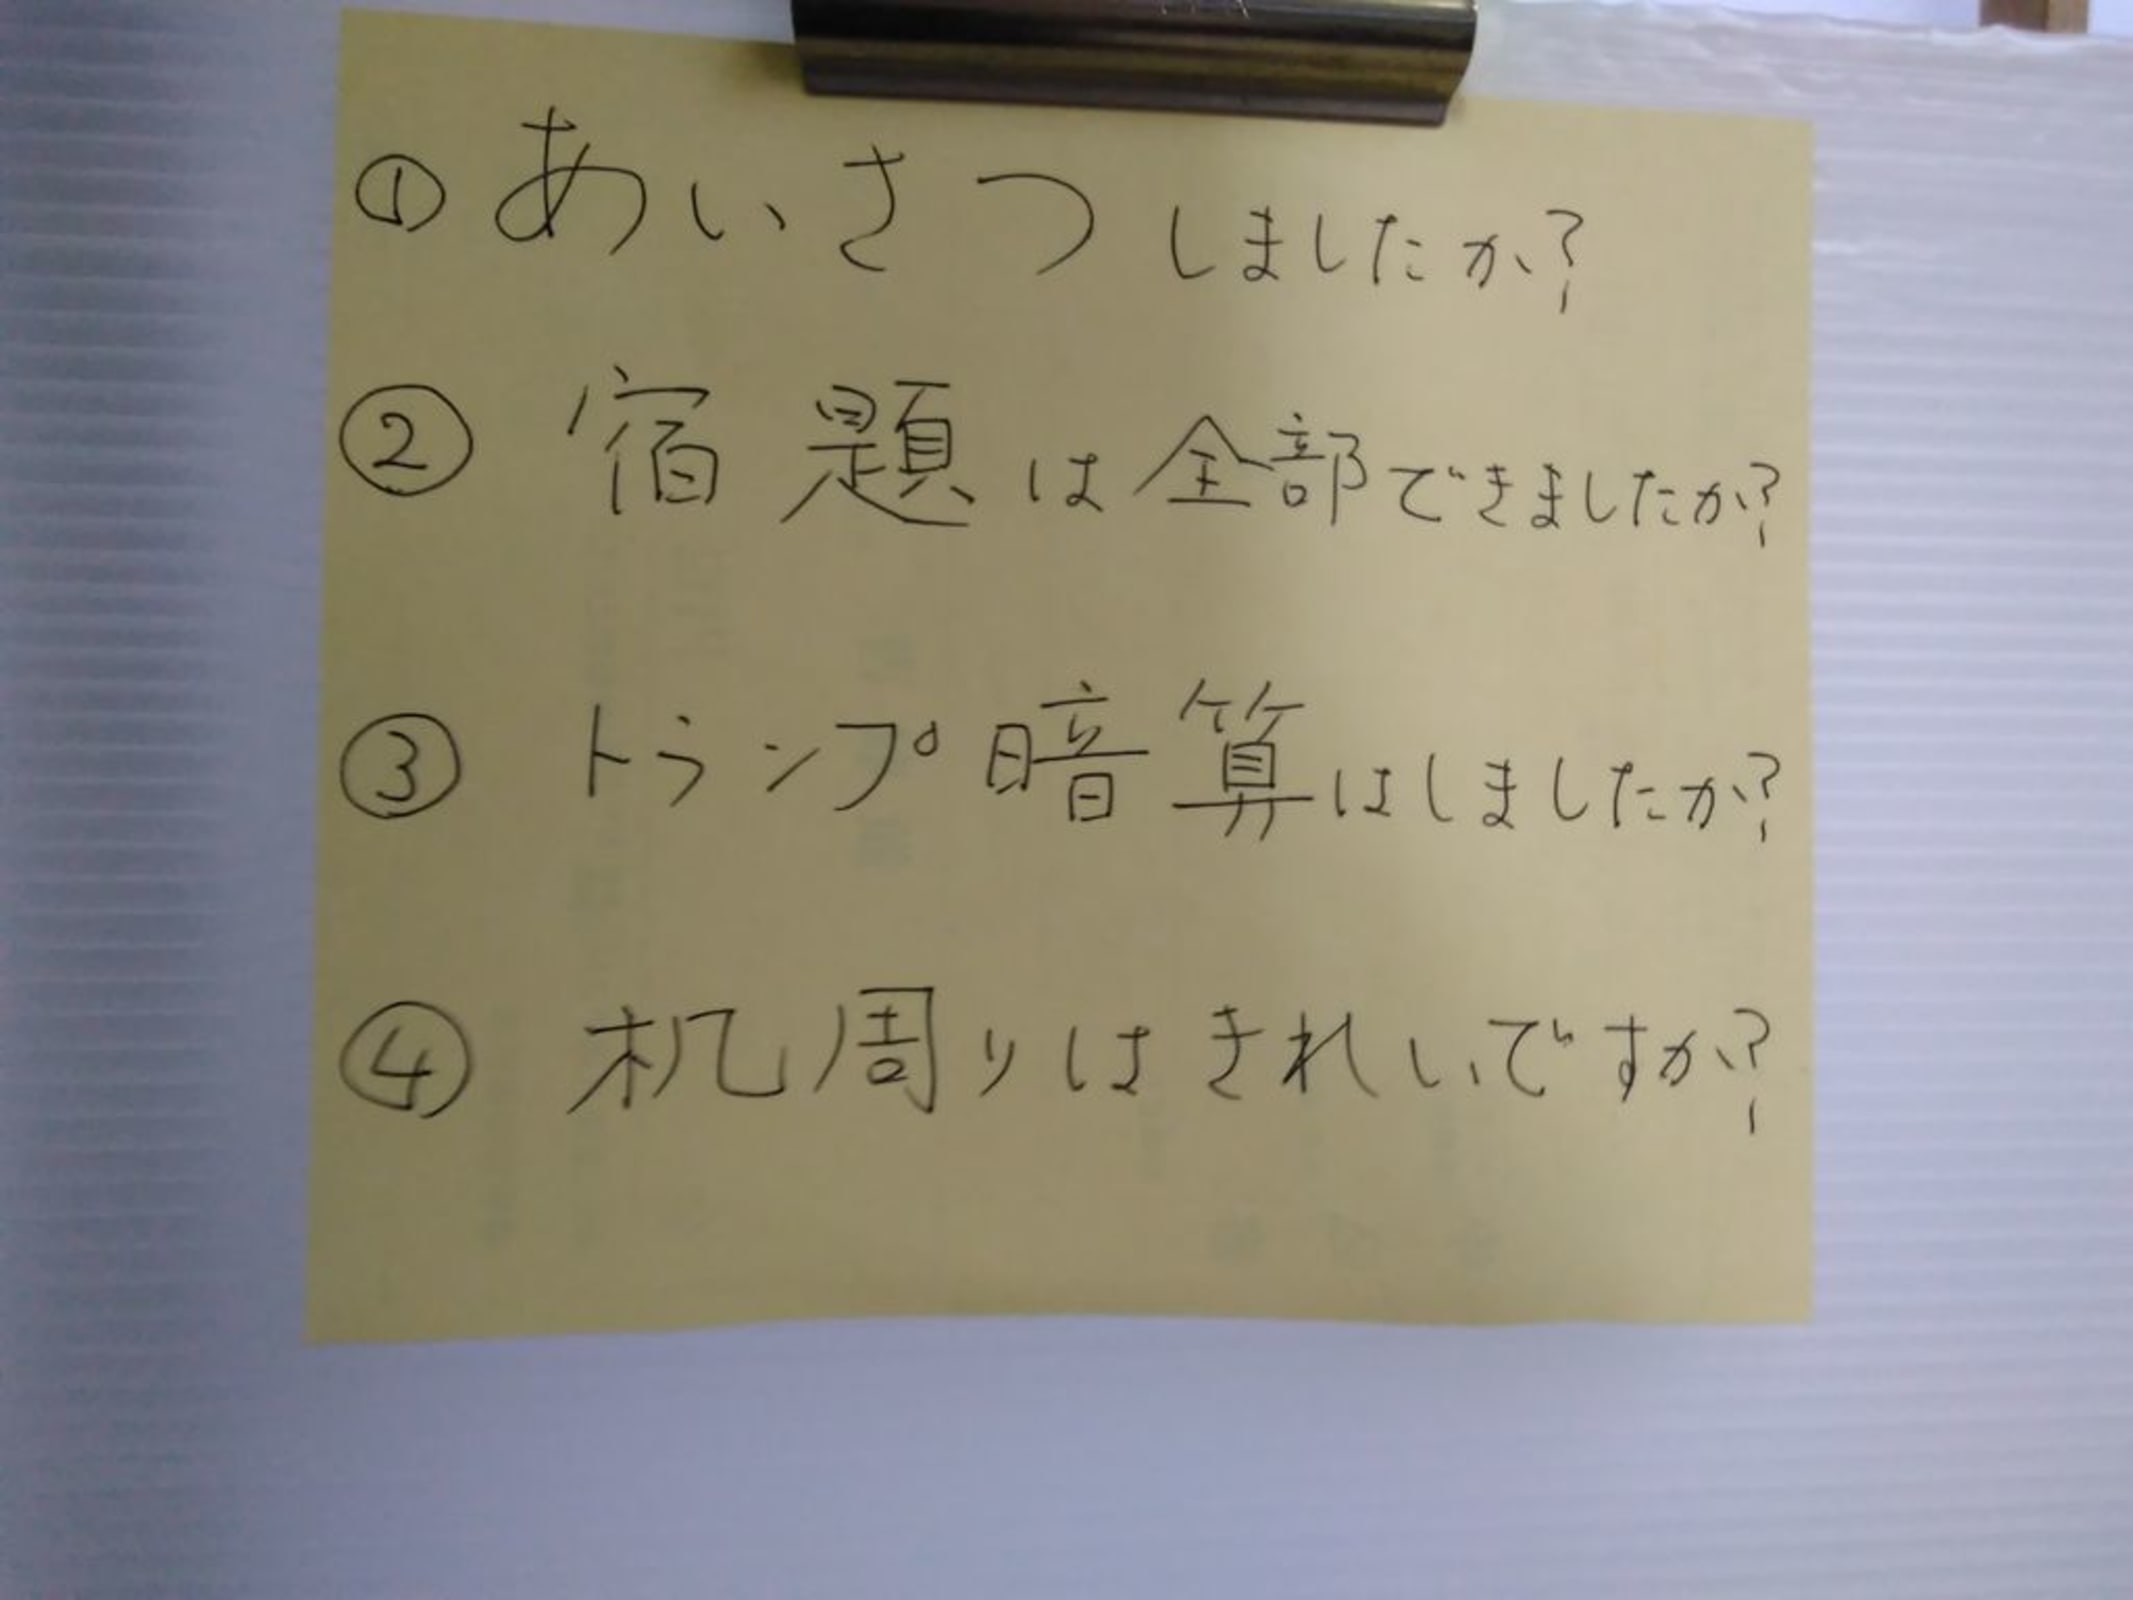 ① あいさつしましたか?
② 宿題は全部できましたか?
③ トランプ暗算はしましたか?
④ 机周りはきれいですか?